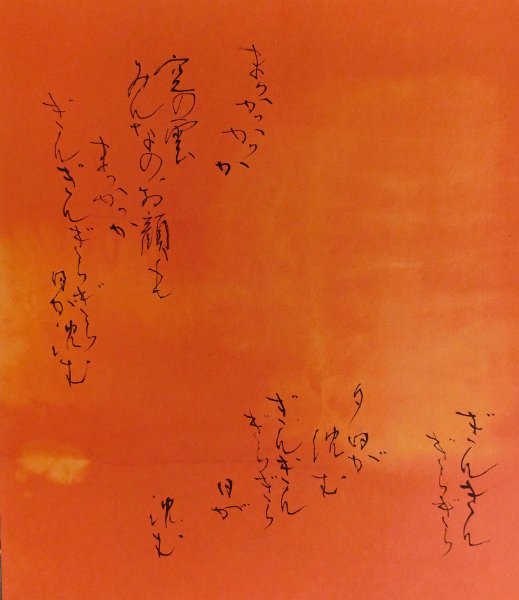 ぎんぎん
ぎらぎら
夕日が
沈む
ぎんぎん
ぎらぎら
日が
沈む
まっかっかっか
空の雲
みんなのお顔も
まっかっか
ぎんぎんぎらぎら
日が沈む